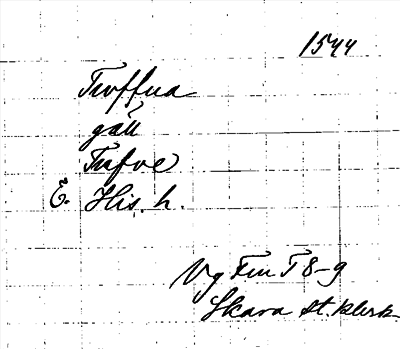 1544
Tuffua
gäll
Tufve
Ö. His. h.
Vg T 8-9
Skara st. klerk.